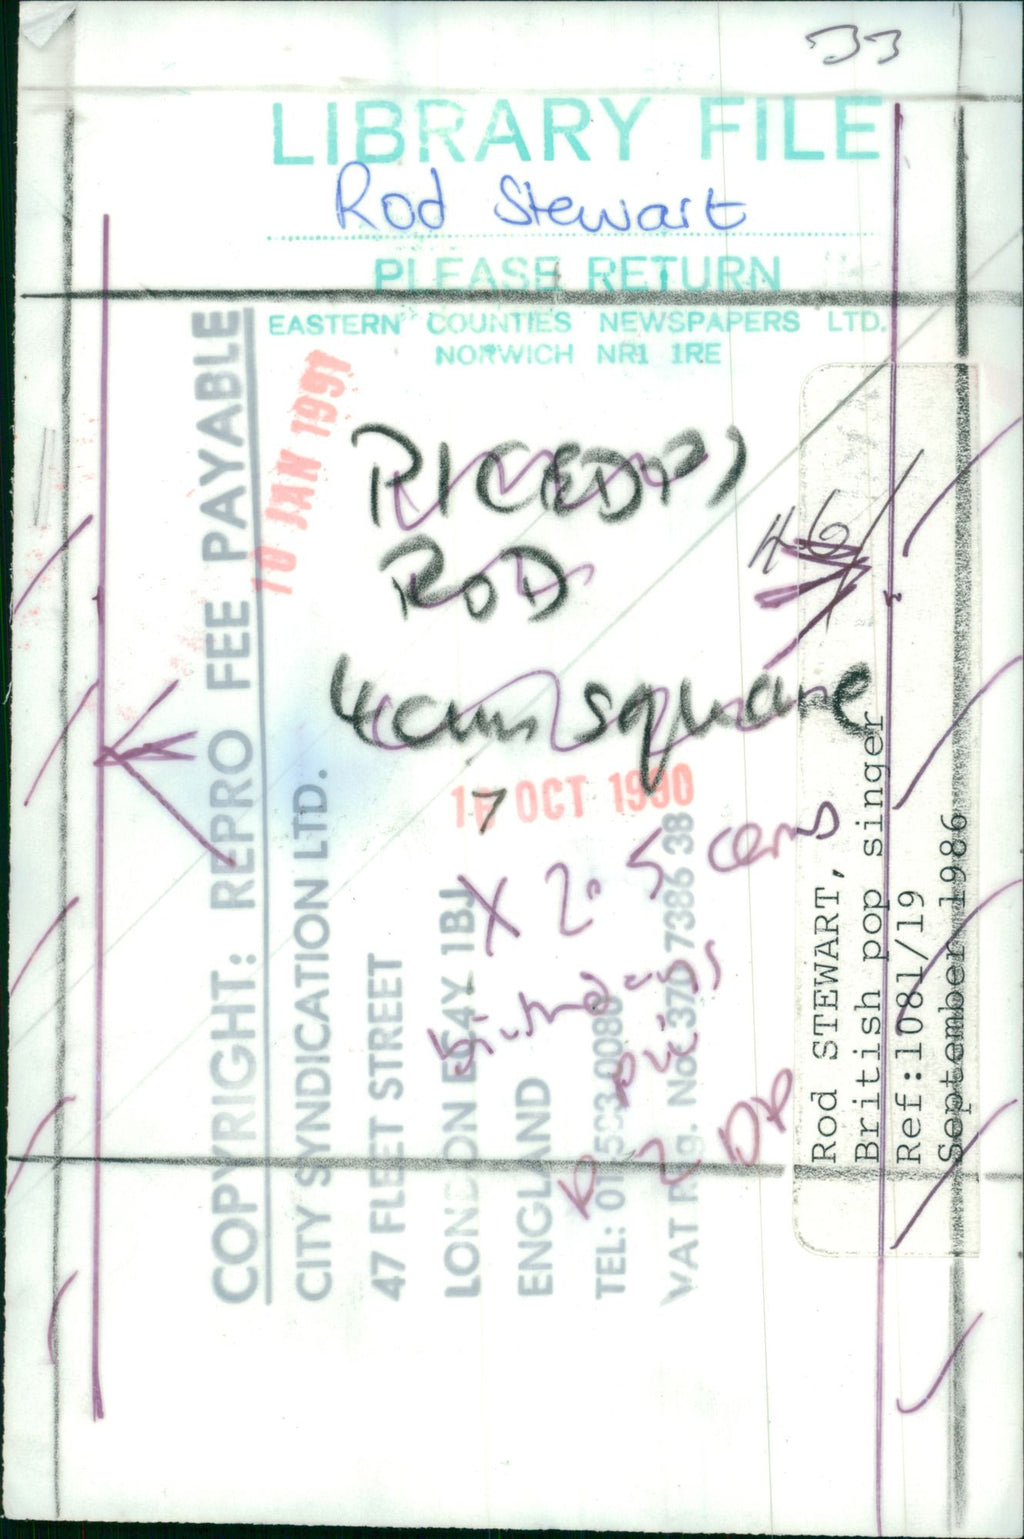 33
LIBRARY FILE
Rod Stewart
PLEASE RETURN
EASTERN COUNTIES NEWSPAPERS LTD.
NORWICH NR1 1RE
10 JAN 1991
ROD
4cm square
OCT 1990
X 2.5 cems
R 2 DP
46
COPYRIGHT: REPRO FEE PAYABLE
CITY SYNDICATION LTD.
47 FLEET STREET
LONDON EC4Y 1BJ
ENGLAND
TEL: 01-583-0080
VAT Reg. No. 370 7386 38
Rod STEWART,
British pop singer
Ref:1081/19
September 1986